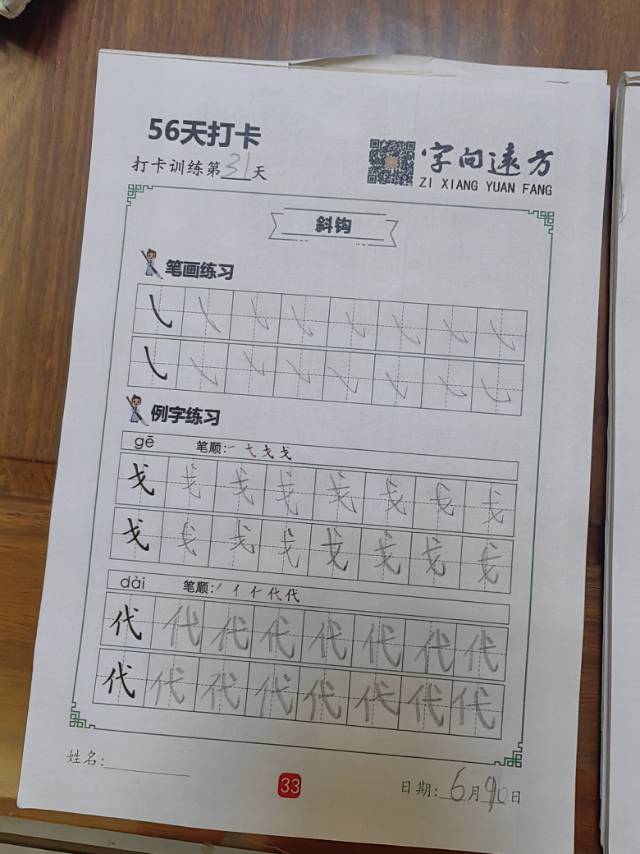 56天打卡
打卡训练第31天
字向远方
ZI XIANG YUAN FANG
斜钩
笔画练习
例字练习
gē 笔顺:一 弋 戈 戈
戈 戈 戈 戈 戈 戈 戈 戈
戈 戈 戈 戈 戈 戈 戈 戈
dài 笔顺:丿 亻 仁 代 代
代 代 代 代 代 代 代 代
代 代 代 代 代 代 代 代
姓名:
33
日期:6月日